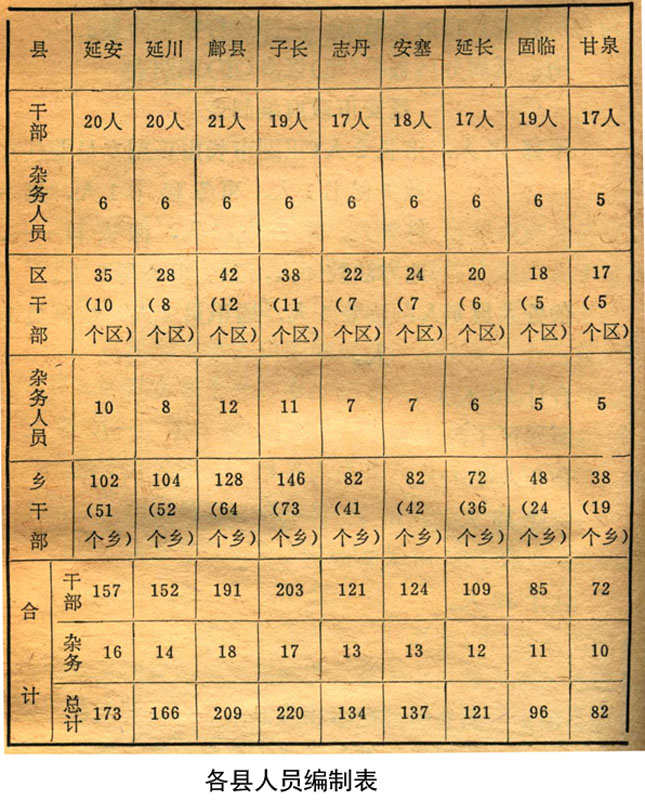 县 延安 延川 鄜县 子长 志丹 安塞 延长 固临 甘泉
干部 20人 20人 21人 19人 17人 18人 17人 19人 17人
杂务人员 6 6 6 6 6 6 6 6 5
区 35 28 42 38 22 24 20 18 17
干 (10 (8 (12 (11 (7 (7 (6 (5 (5
部 个区) 个区) 个区) 个区) 个区) 个区) 个区) 个区) 个区)
杂务人员 10 8 12 11 7 7 6 5 5
乡 102 104 128 146 82 82 72 48 38
干 (51 (52 (64 (73 (41 (42 (36 (24 (19
部 个乡) 个乡) 个乡) 个乡) 个乡) 个乡) 个乡) 个乡) 个乡)
合计
干部 157 152 191 203 121 124 109 85 72
杂务 16 14 18 17 13 13 12 11 10
总计 173 166 209 220 134 137 121 96 82
各县人员编制表